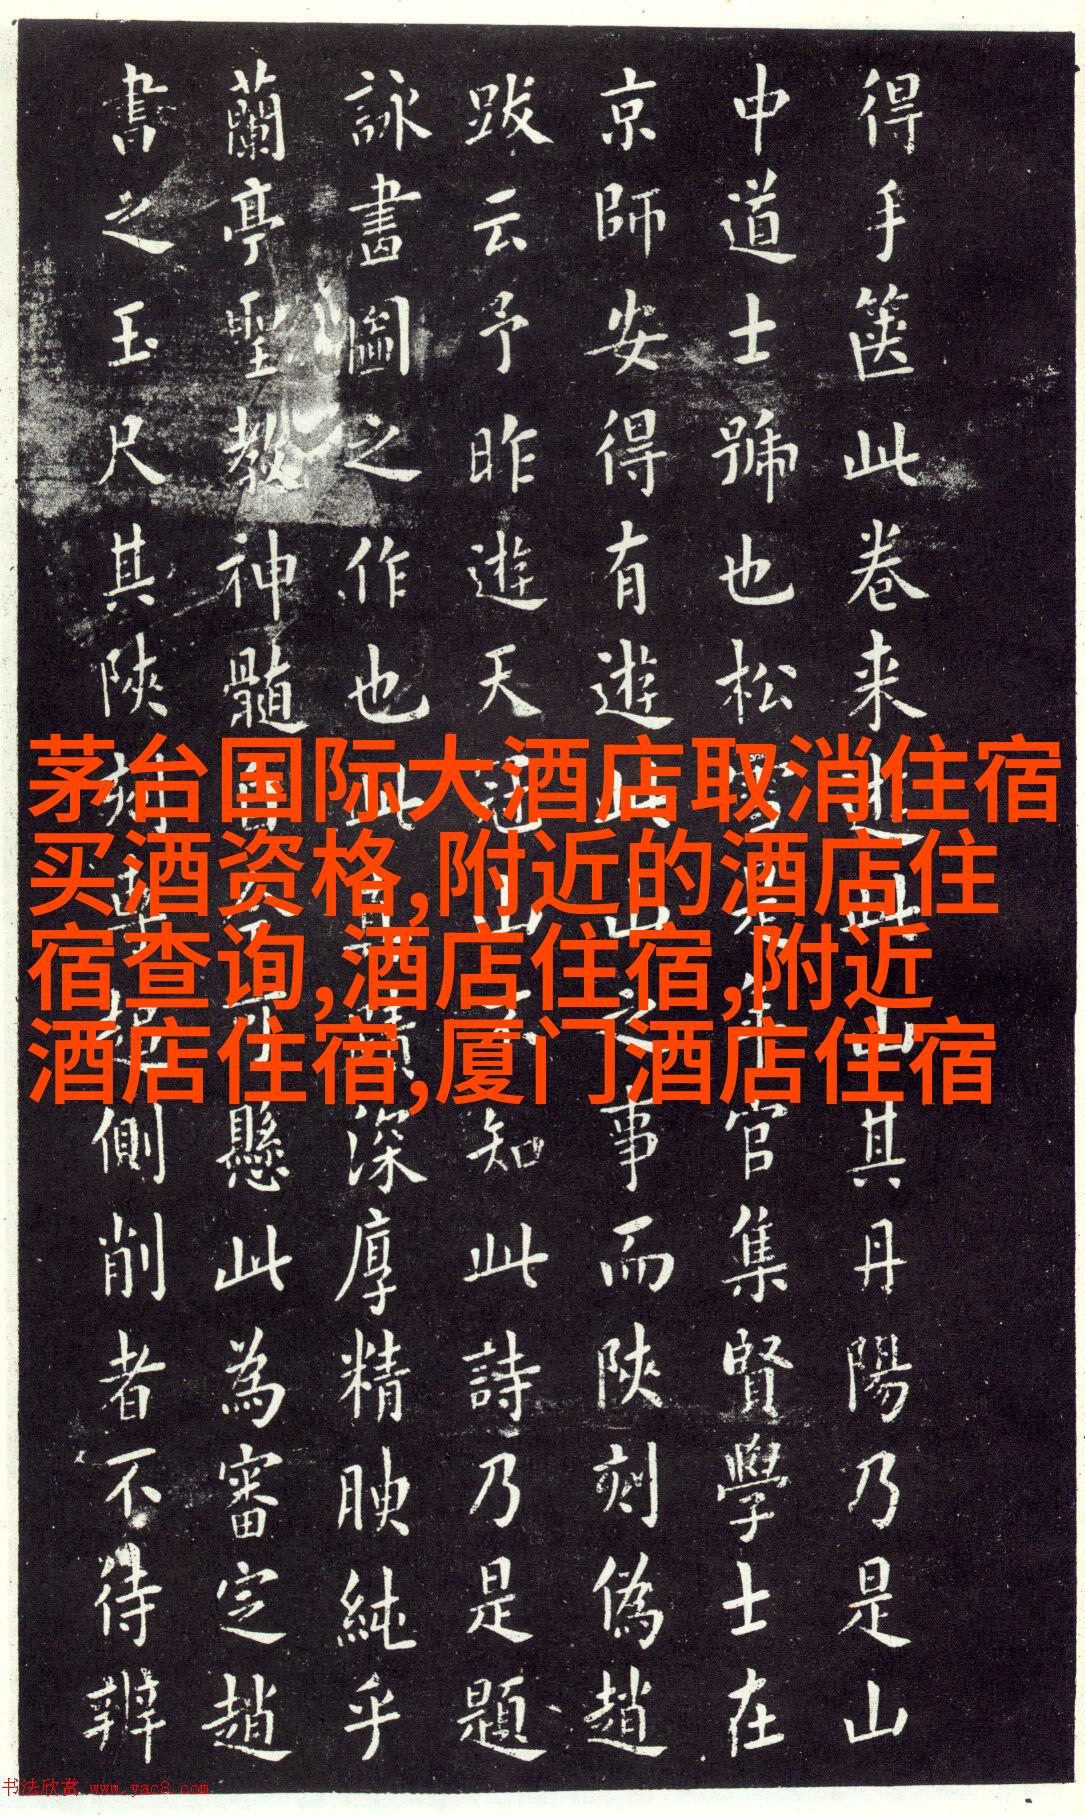 得手篋此卷来此山其丹陽乃是山
中道士號也松雪官集賢學士在
京師安得有遊此山之事而陝刻偽趙
跋云予昨遊天冠山知此詩乃是題
詠畫圖之作也此書深厚精腴純乎
蘭亭聖教神髓可懸此為審定趙
書之玉尺其陝刻側削者不待辨
茅台国际大酒店取消住宿
买酒资格,附近的酒店住
宿查询,酒店住宿,附近
酒店住宿,厦门酒店住宿
书法欣赏 www.yac8.com